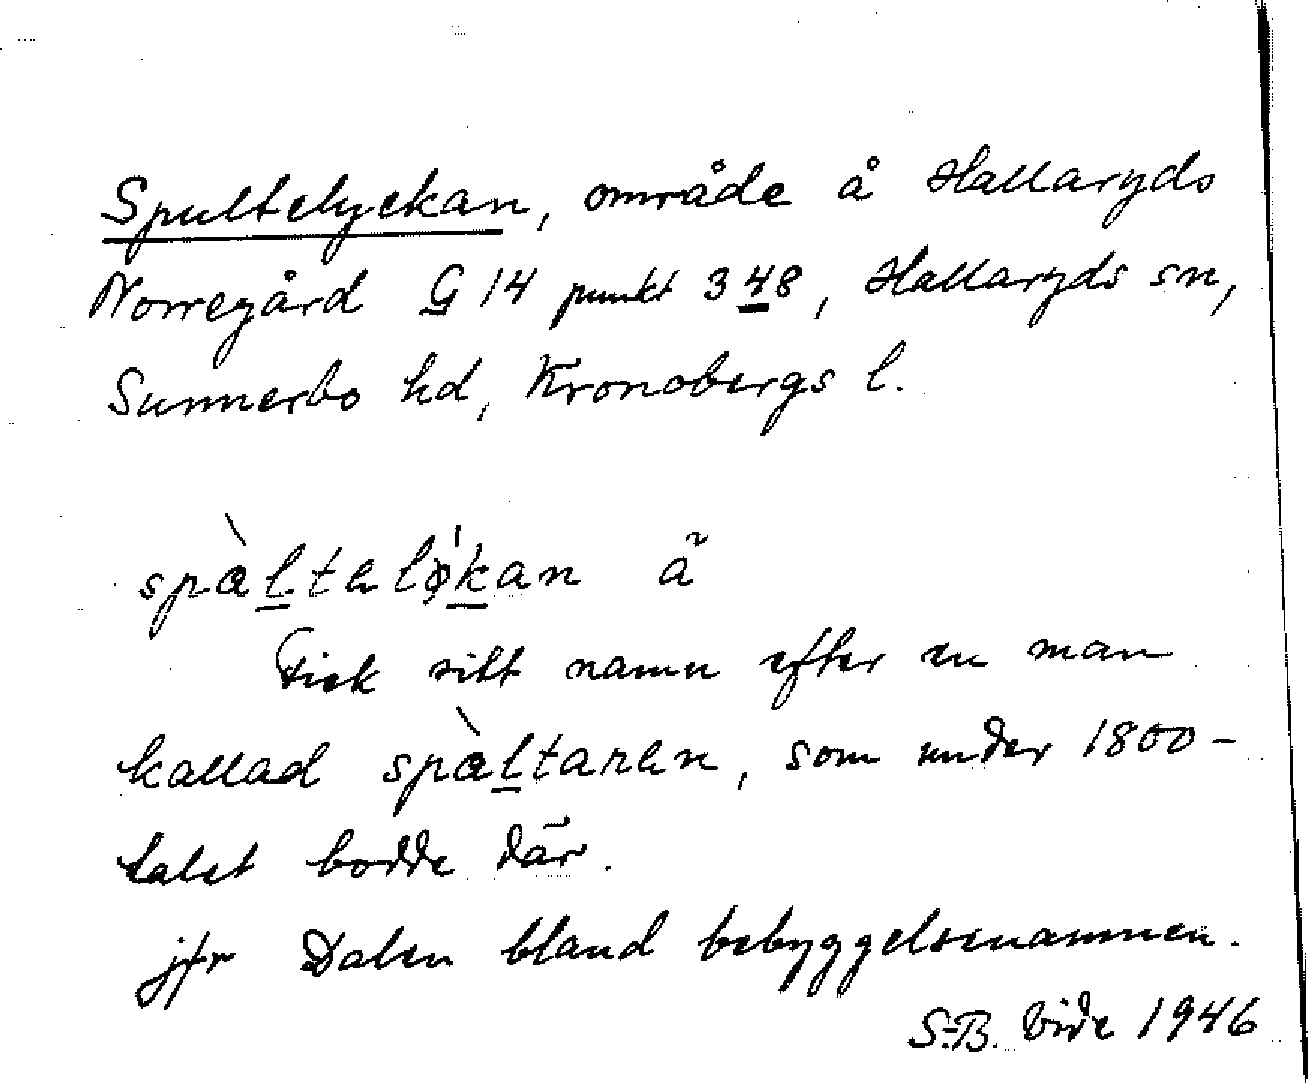 Spultelyckan, område å Hallaryds
Norregård G 14 punkt 348, Hallaryds sn,
Sunnerbo hd, Kronobergs l.
spàltelø̀kan ã
Fick sitt namn efter en man
kallad spàltaren, som under 1800-
talet bodde där.
jfr Dalen bland bebyggelsenamnen.
S-B. Vide 1946